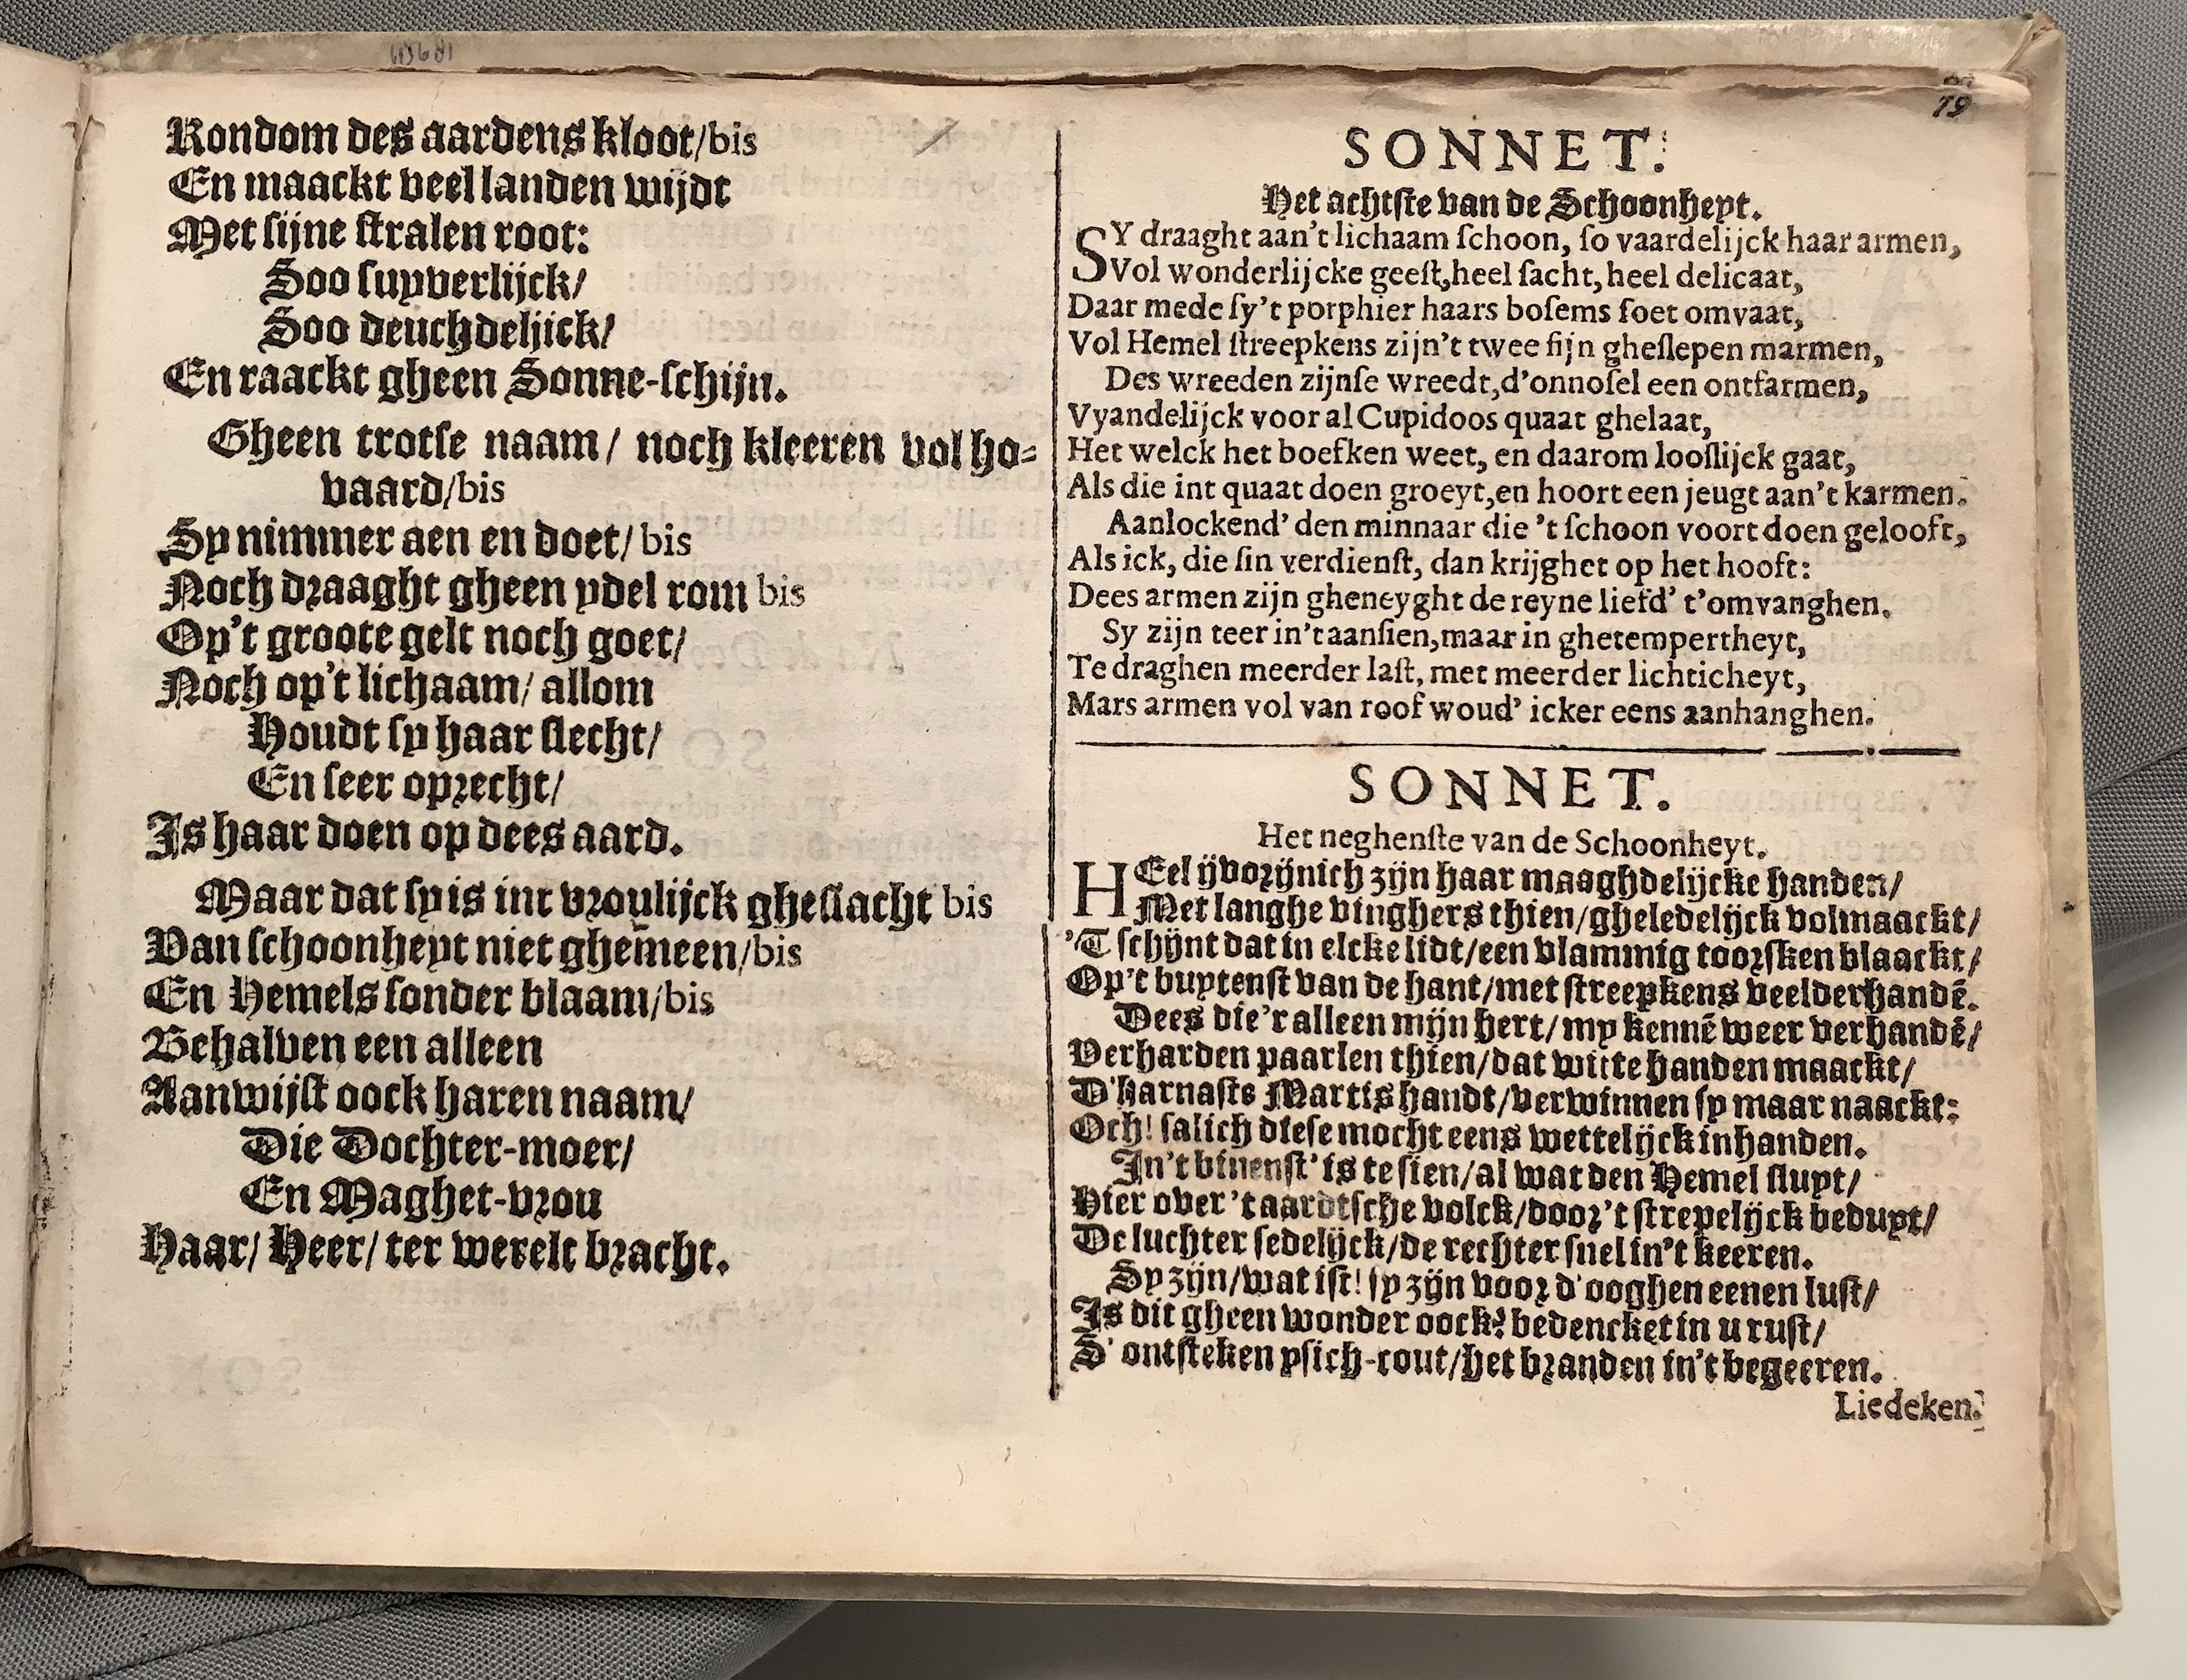 Rondom des aardens kloot/bis
En maackt veel landen wijdt
Met sijne stralen root:
Soo suyverlijck/
Soo deuchdelijck/
En raackt gheen Sonne-schijn.
Gheen trotse naam/ noch kleeren vol ho-
vaard/bis
Sy nimmer aen en doet/ bis
Noch draaght gheen ydel rom bis
Op't groote gelt noch goet/
Noch op't lichaam/ allom
Houdt sy haar slecht/
En seer oprecht/
Is haar doen op dees aard.
Maar dat sy is int vroulijck gheslacht bis
Van schoonheyt niet ghemeen/bis
En Hemels sonder blaam/bis
Behalven een alleen
Aanwijst oock haren naam/
Die Dochter-moer/
En Maghet-vrou
Haar/ Heer/ ter werelt bracht.
79
SONNET.
Het achtste van de Schoonheyt.
SY draaght aan't lichaam schoon, so vaardelijck haar armen,
Vol wonderlijcke geest, heel sacht, heel delicaat,
Daar mede sy't porphier haars bosems soet omvaat,
Vol Hemel streepkens zijn't twee fijn gheslepen marmen,
Des wreeden zijnse wreedt, d'onnosel een ontfarmen,
Vyandelijck voor al Cupidoos quaat ghelaat,
Het welck het boefken weet, en daarom looslijck gaat,
Als die int quaat doen groeyt, en hoort een jeugt aan't karmen.
Aanlockend' den minnaar die 't schoon voort doen gelooft,
Als ick, die sin verdienst, dan krijghet op het hooft:
Dees armen zijn gheneyght de reyne liefd' t'omvanghen.
Sy zijn teer in't aansien, maar in ghetempertheyt,
Te draghen meerder last, met meerder lichticheyt,
Mars armen vol van roof woud' icker eens aanhanghen.
SONNET.
Het neghenste van de Schoonheyt.
HEel ijvorijnich zijn haar maaghdelijcke handen/
Met langhe vinghers thien/gheledelijck volmaackt/
'T schijnt dat in elcke lidt/een vlammig toorsken blaackt/
Op't buytenst van de hant/met streepkens veelderhandē.
Dees die'r alleen mijn hert/ my kennē weer verhandē/
Verharden paarlen thien/dat witte handen maackt/
D'harnaste Martis handt/verwinnen sy maar naackt:
Och! salich diese mocht eens wettelijck inhanden.
In't binenst' is te sien/al wat den Hemel sluyt/
Hier over 't aardtsche volck/door't strepelijck beduyt/
De luchter sedelijck/de rechter snel in't keeren.
Sy zijn/wat ist! sy zijn voor d'ooghen eenen lust/
Is dit gheen wonder oock? bedencket in u rust/
S' ontsteken ysich-cout/het branden in't begeeren.
Liedeken.